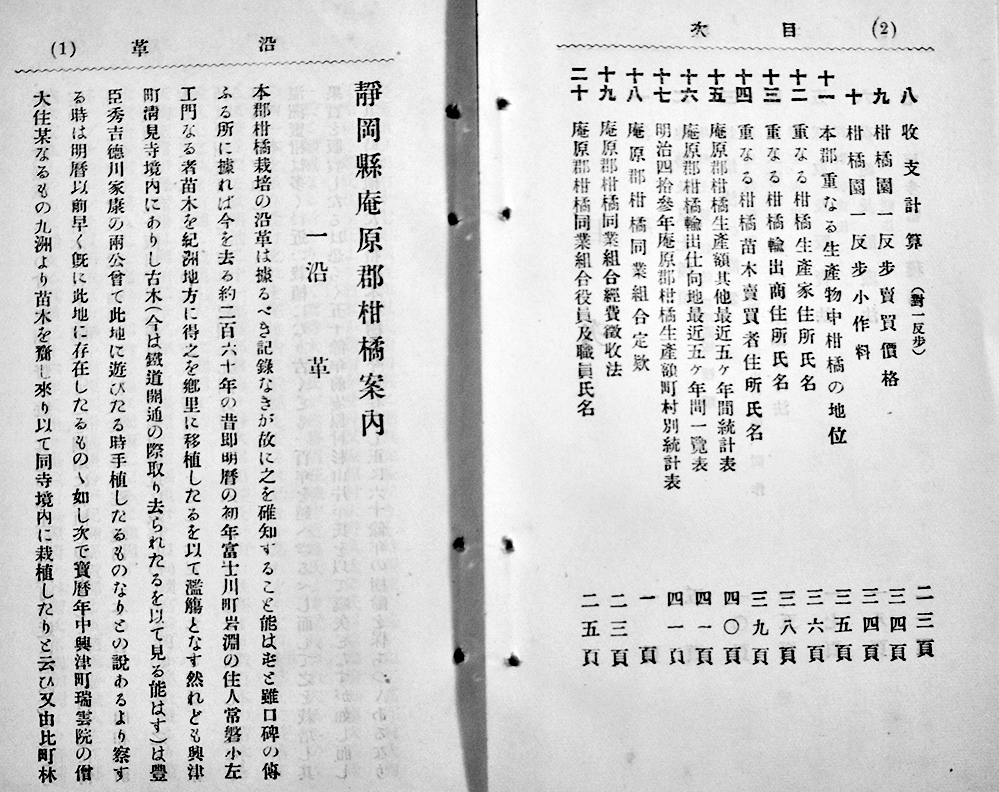 (2) 目次
八 收支計算(對一反步) 二三頁
九 柑橘園一反步賣買價格 三四頁
十 柑橘園一反步小作料 三四頁
十一 本郡重なる生產物中柑橘の地位 三五頁
十二 重なる柑橘生產家住所氏名 三六頁
十三 重なる柑橘輸出商住所氏名 三八頁
十四 重なる柑橘苗木賣買者住所氏名 三九頁
十五 庵原郡柑橘生產額其他最近五ヶ年間統計表 四〇頁
十六 庵原郡柑橘輸出仕向地最近五ヶ年間一覽表 四一頁
十七 明治四拾參年庵原郡柑橘生產額町村別統計表 四一頁
十八 庵原郡柑橘同業組合定欵 一頁
十九 庵原郡柑橘同業組合經費徵收法 二三頁
二十 庵原郡柑橘同業組合役員及職員氏名 二五頁
沿革 (1)
靜岡縣庵原郡柑橘案內
一 沿革
本郡柑橘栽培の沿革は據るべき記錄なきが故に之を確知すること能はずと雖口碑の傳
ふる所に據れば今を去る約二百六十年の昔即明曆の初年富士川町岩淵の住人常磐小左
工門なる者苗木を紀洲地方に得之を鄉里に移植したるを以て濫觴となす然れども興津
町淸見寺境內にありし古木(今は鐵道開通の際取り去られたるを以て見る能はす)は豐
臣秀吉德川家康の兩公曾て此地に遊びたる時手植したるものなりとの說あるより察す
る時は明曆以前早く旣に此地に存在したるものゝ如し次で寶曆年中興津町瑞雲院の僧
大住某なるもの九洲より苗木を齎し來り以て同寺境內に栽植したりと云ひ又由比町林